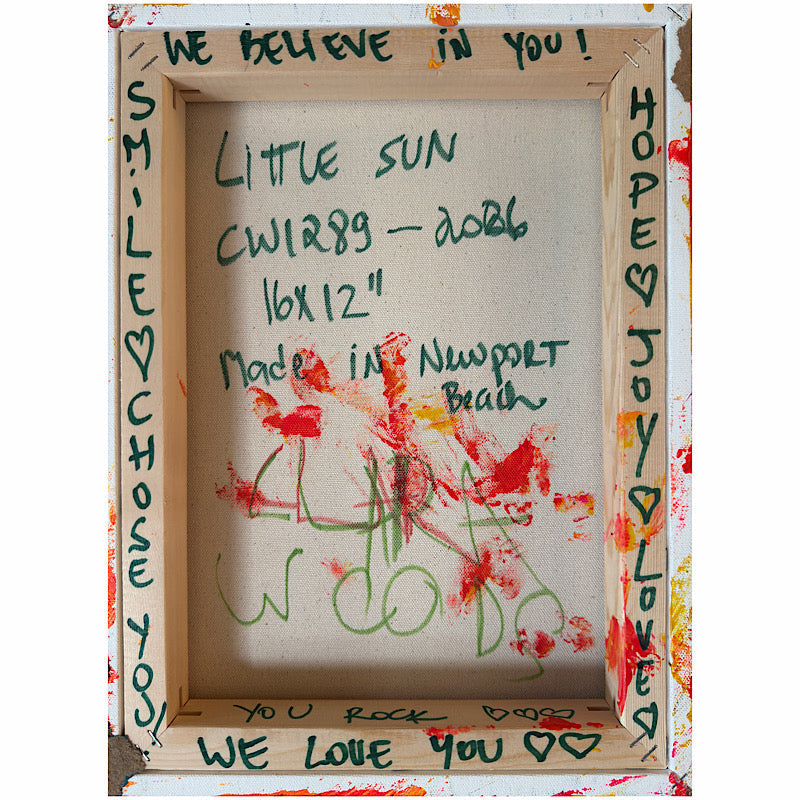 WE BELIEVE IN YOU!
SMiLE♡CHOSE YOU!
HOPE♡JOY♡LOVE♡
LITTLE SUN
CW1289 —
16X12"
Made iN NEWPORT
Beach
CLARA
WOODS
YOU ROCK ♡♡♡
WE LOVE YOU ♡♡